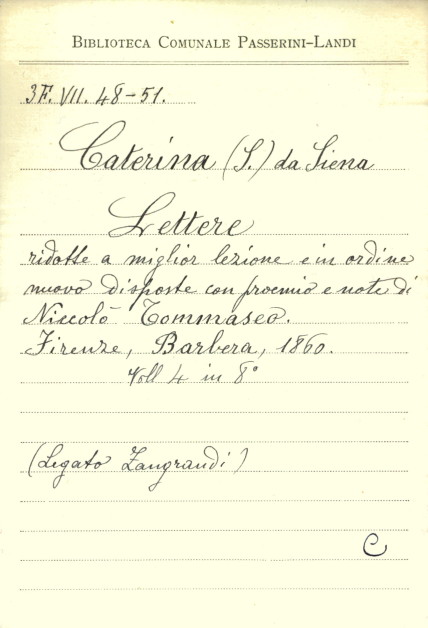 BIBLIOTECA COMUNALE PASSERINI-LANDI
3F. VII. 48-51.
Caterina (S.) da Siena
Lettere
ridotte a miglior lezione e in ordine
nuovo disposte con proemio e note di
Niccolò Tommaseo.
Firenze, Barbera, 1860.
Voll 4 in 8°
(Legato Zangrandi)
C